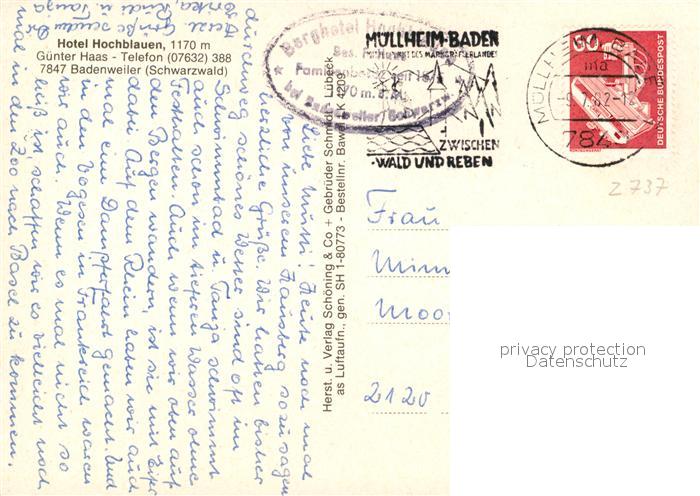 Hotel Hochblauen, 1170 m
Günter Haas - Telefon (07632) 388
7847 Badenweiler (Schwarzwald)
Liebe Mutti! Heute noch mal
von unserem Hausberg sozusagen
herzliche Grüße. Wir haben bisher
durchweg schönes Wetter, sind oft im
Schwimmbad u. Tanja schwimmt
auch schon im tiefen Wasser ohne
Festhalten. Auch wenn wir oben auf
den Bergen wandern, ist sie mit Eifer
dabei. Auf dem Rhein haben wir auch
mal eine Dampferfahrt gemacht. Und
in den Vogesen in Frankreich waren
wir auch. Wenn es mal nicht so
heiß ist schaffen wir es vielleicht noch
mal in den Zoo nach Basel zu kommen.
Herzl. Grüße senden Dir
u. Tanja
Herst. u. Verlag Schöning & Co + Gebrüder Schmidt, Lübeck
as Luftaufn., gen. SH 1-80773 - Bestellnr. Bawei K 4209
Berghotel
MÜLLHEIM-BADEN
MITTELPUNKT DES MARKGRÄFLERLANDES
ZWISCHEN
WALD UND REBEN
MÜLLHEIM
ma
82-1
784
60
DEUTSCHE BUNDESPOST
Z 737
Frau
Mim
Moo
2120
privacy protection
Datenschutz